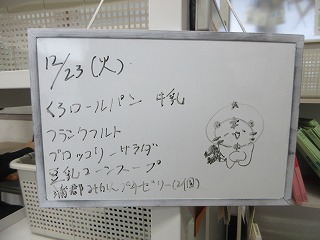 12/23(火)
くろロールパン 牛乳
フランクフルト
ブロッコリーサラダ
豆乳コーンスープ
蒲郡みかんゼリー(2個)